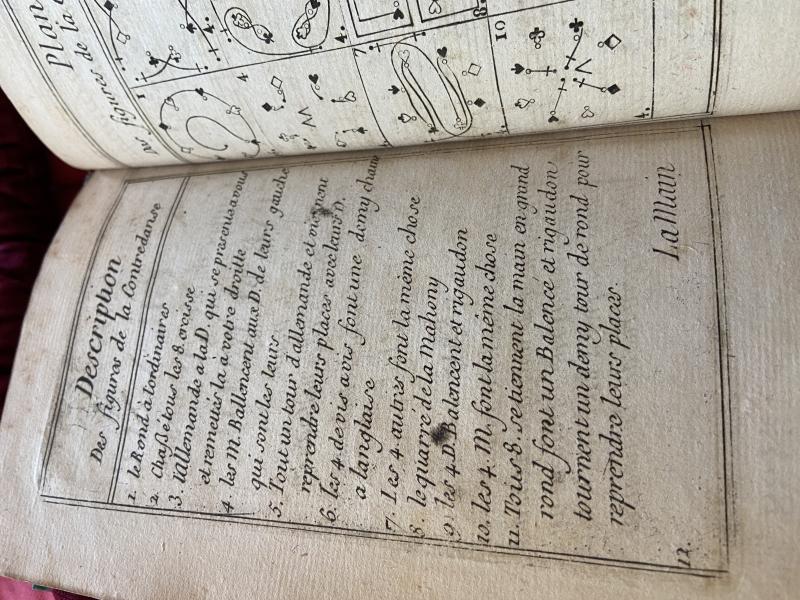 Plan
des figures de la
1
4.
4.
7
8.
10
4.
Description
Des figures de la Contredanse
1. le Rond à lordinaires
2. Chaßé tous les 8. croisse
3. lallemande a la D. qui se presente a vous
et remettés la à votre droitte
4. les M. Ballencent aux D. de leurs gauche
qui sont les leurs
5. Tout un tour d'allemande et viennent
reprendre leurs places avec leurs D.
6. les 4 de vis a vis font une demy chaine
a langlaise
7. Les 4 autres font la même chose
8. le quarré de la Mahony
9. les 4 D. Balencent et rigaudon
10. les 4. M. font la même chose
11. Tous 8. se tiennent la main en grand
rond font un Balencé et rigaudon
tournent un demy tour de rond pour
reprendre leurs places.
12.
La Main